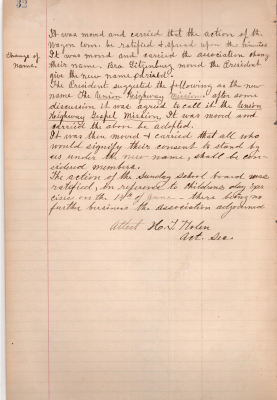 32
It was moved and carried that the action of the
Wagon Com. be ratified & spread upon the minutes
Change of
name.
It was moved and carried the association change
their name. Bro moved the President
give the new name. Carried.
The President suggested the following as the new
name The Union Highway Mission. After some
discussion it was agreed to call it the Union
Highway Gospel Mission. It was moved and
carried the above be adopted.
It was then moved & carried that all who
would signify their consent to stand by
us under the new name, shall be con-
sidered members.
The action of the Sunday School board was
ratified, in reference to childrens day Exer
cises on the 14th of June - there being no
further business the association adjourned
Attest H. L. Nolen
Act. Sec.